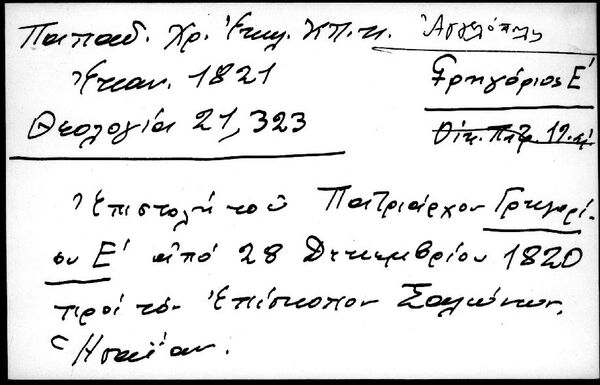 Παπαδ. Χρ. Ἐκκλ. Κπ. κ.
Ἐπαν. 1821
Θεολογία 21, 323
Γρηγόριος Ε΄
Οἰκ. Πατρ. 19.
Ἐπιστολή τοῦ Πατριάρχου Γρηγορί-
ου Ε΄ ἀπό 28 Δεκεμβρίου 1820
πρός τόν Ἐπίσκοπον Σαλώνων,
Ἡσαΐαν.